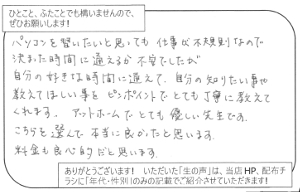 ひとこと、ふたことでも構いませんので、
ぜひお願いします！
パソコンを習いたいと思っても仕事が不規則なので
決まった時間に通えるか不安でしたが
自分の好きな時間に通えて、自分の知りたい事や
教えてほしい事をピンポイントでとても丁寧に教えて
くれます。アットホームで、とても優しい先生です。
こちらを選んで本当に良かったと思います。
料金も良心的だと思います。
ありがとうございます！ いただいた「生の声」は、当店HP、配布チ
ラシに「年代・性別」のみの記載でご紹介させていただきます！